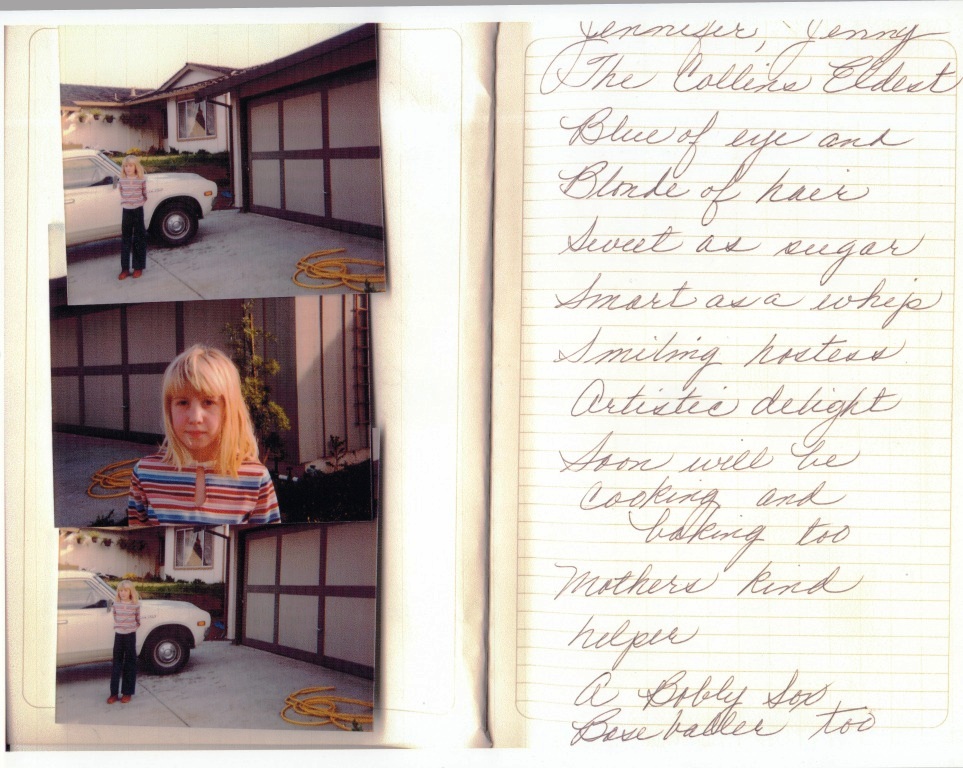 Jennifer, Jenny
The Collins Eldest
Blue of eye and
Blonde of hair
Sweet as sugar
Smart as a whip
Smiling hostess
Artistic delight
Soon will be
cooking and
baking too
Mothers kind
helper
A Bobby Sox
Base baller too